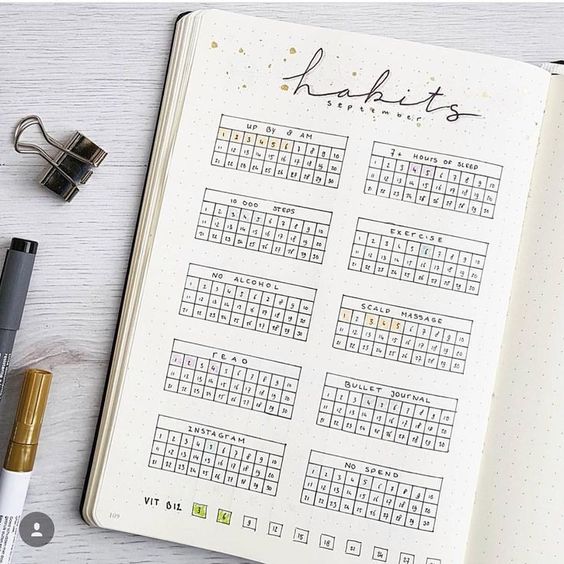 habits
september
UP BY 8 AM
1 2 3 4 5 6 7 8 9 10
11 12 13 14 15 16 17 18 19 20
21 22 23 24 25 26 27 28 29 30
7+ HOURS OF SLEEP
1 2 3 4 5 6 7 8 9 10
11 12 13 14 15 16 17 18 19 20
21 22 23 24 25 26 27 28 29 30
10 000 STEPS
1 2 3 4 5 6 7 8 9 10
11 12 13 14 15 16 17 18 19 20
21 22 23 24 25 26 27 28 29 30
EXERCISE
1 2 3 4 5 6 7 8 9 10
11 12 13 14 15 16 17 18 19 20
21 22 23 24 25 26 27 28 29 30
NO ALCOHOL
1 2 3 4 5 6 7 8 9 10
11 12 13 14 15 16 17 18 19 20
21 22 23 24 25 26 27 28 29 30
SCALP MASSAGE
1 2 3 4 5 6 7 8 9 10
11 12 13 14 15 16 17 18 19 20
21 22 23 24 25 26 27 28 29 30
READ
1 2 3 4 5 6 7 8 9 10
11 12 13 14 15 16 17 18 19 20
21 22 23 24 25 26 27 28 29 30
BULLET JOURNAL
1 2 3 4 5 6 7 8 9 10
11 12 13 14 15 16 17 18 19 20
21 22 23 24 25 26 27 28 29 30
INSTAGRAM
1 2 3 4 5 6 7 8 9 10
11 12 13 14 15 16 17 18 19 20
21 22 23 24 25 26 27 28 29 30
NO SPEND
1 2 3 4 5 6 7 8 9 10
11 12 13 14 15 16 17 18 19 20
21 22 23 24 25 26 27 28 29 30
VIT B12 3 6 9 12 15 18 21 24 27 30
109